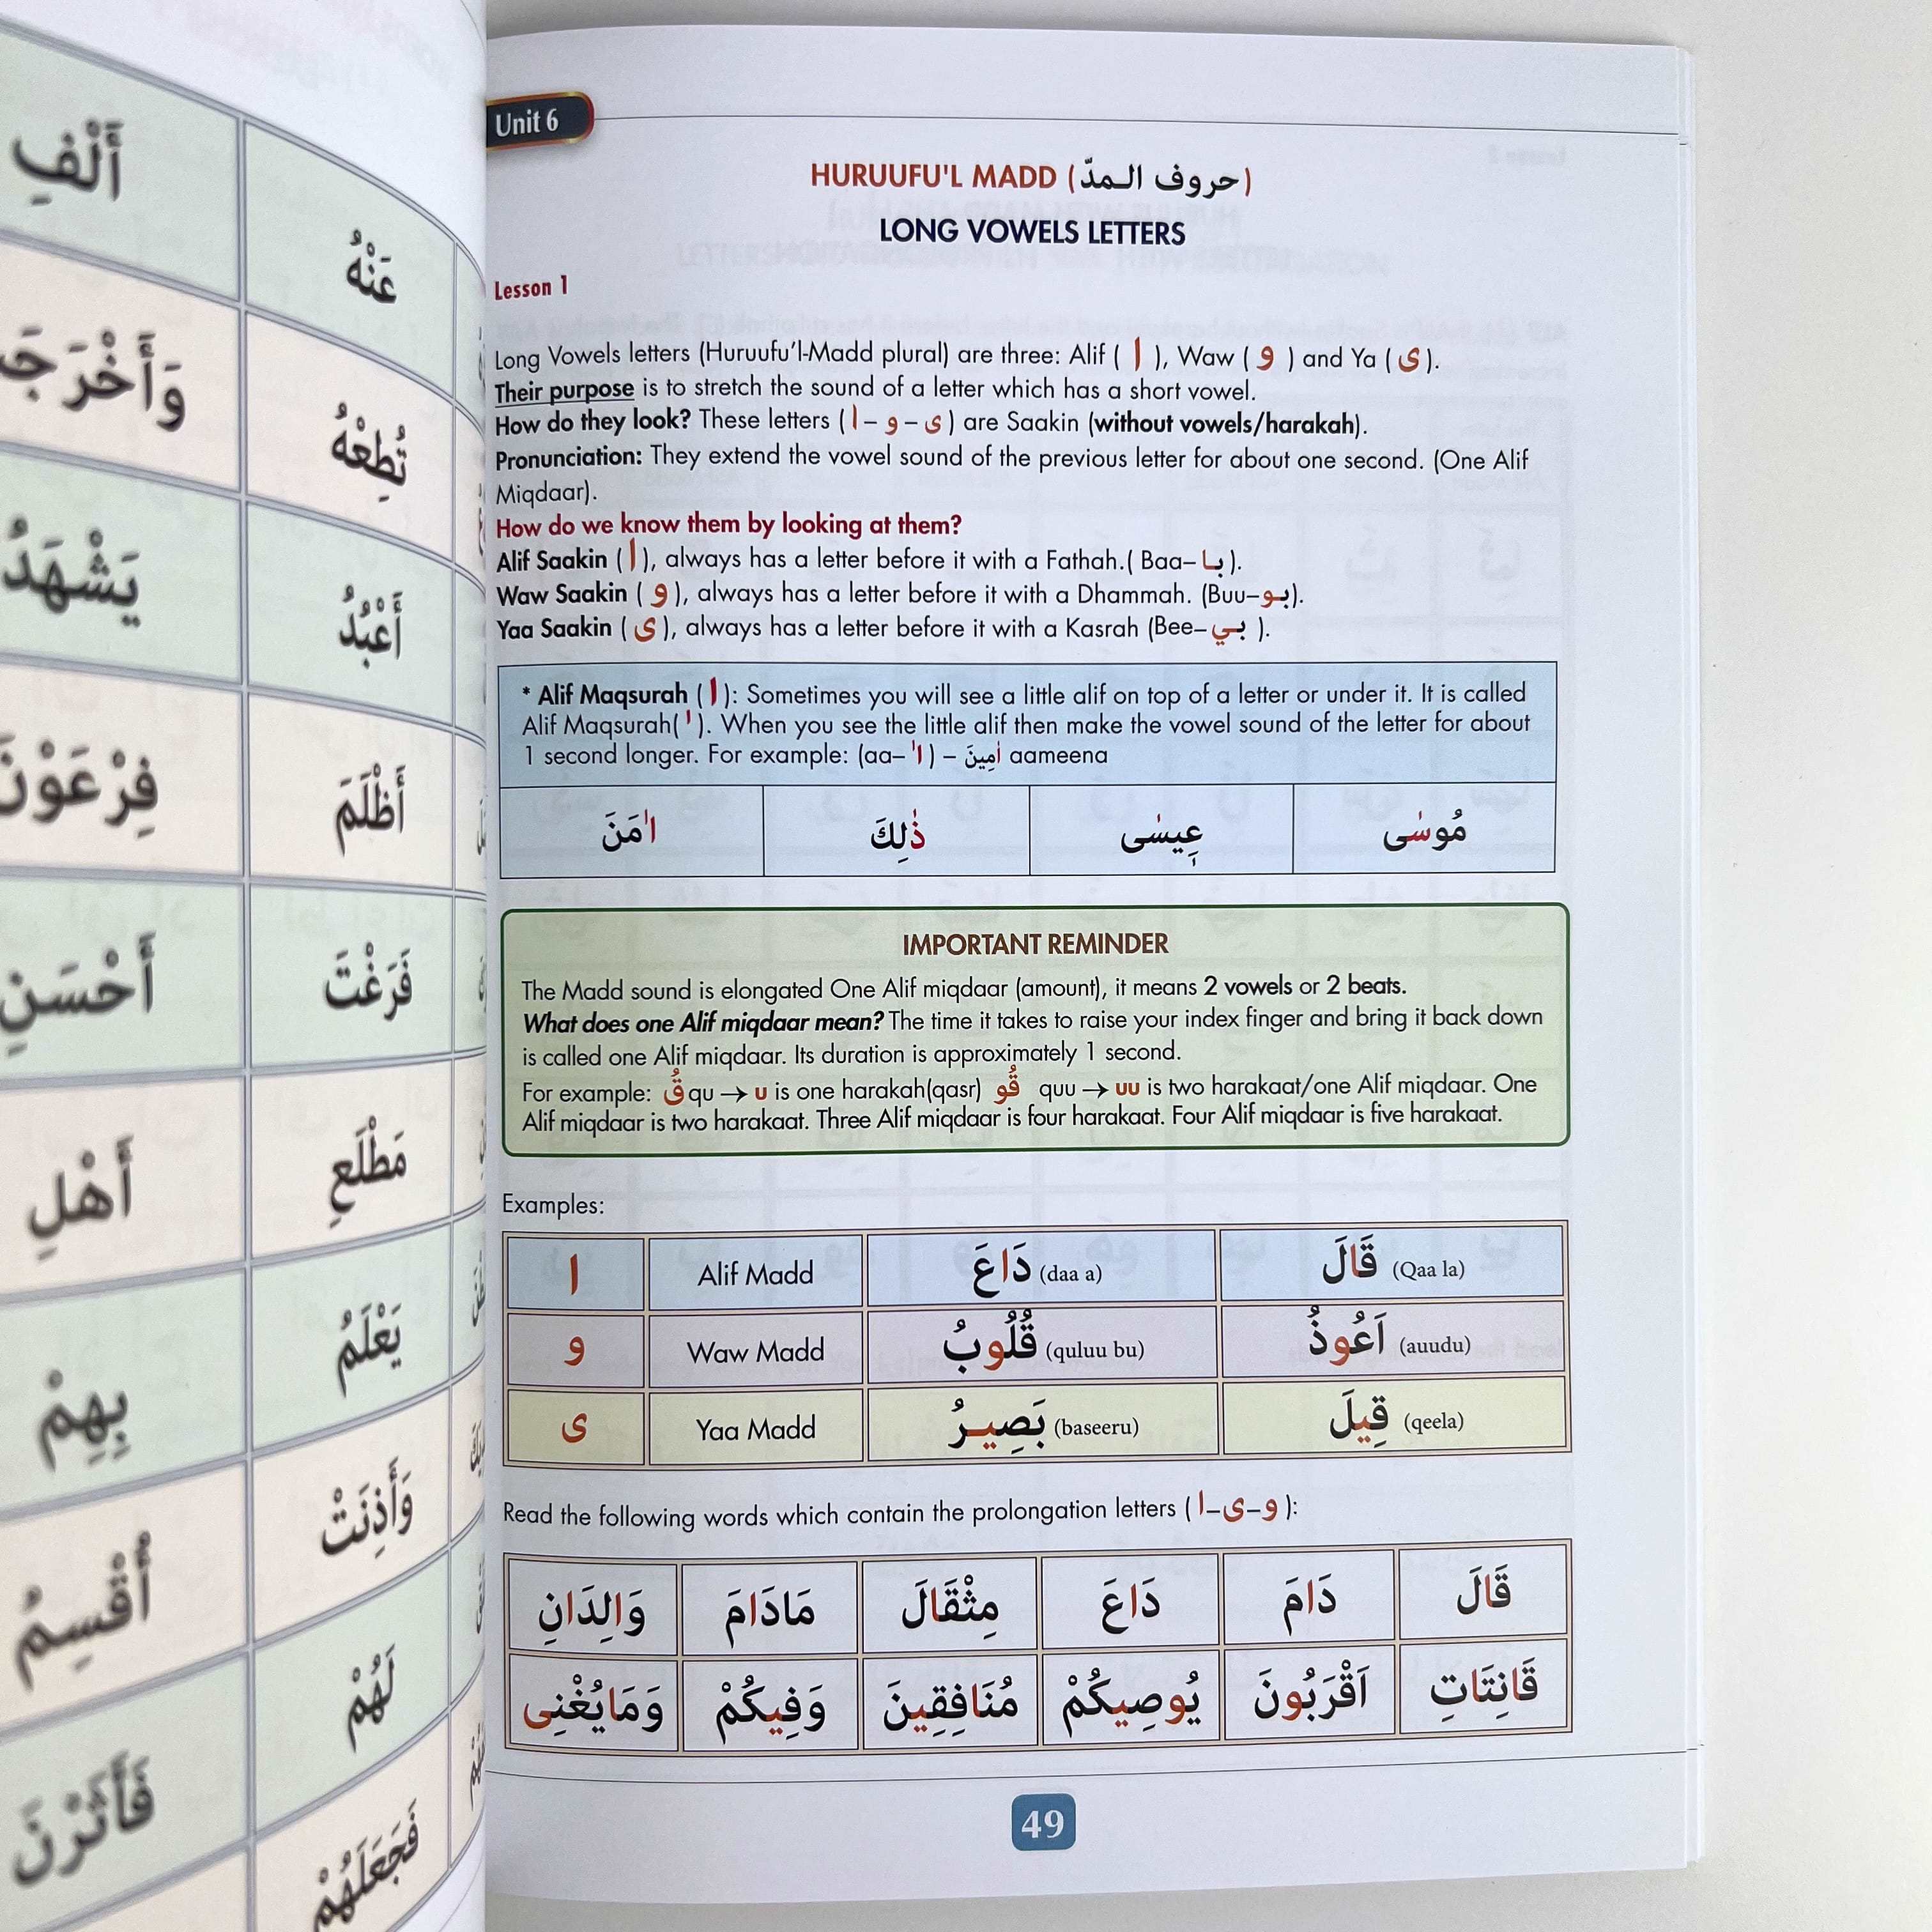 أَلْفِ
عَنْهُ
تُطِعْهُ
يَشْهَدُ
أَعْبُدُ
فِرْعَوْنَ
أَظْلَمَ
أَحْسَنِ
فَرَغْتَ
أَهْلِ
مَطْلَعِ
بِهِمْ
يَعْلَمُ
أُقْسِمُ
وَأَذِنَتْ
فَأَثَرْنَ
لَهُمْ
فَجَعَلَهُمْ
Unit 6
HURUUFU'L MADD (حروف المدّ)
LONG VOWELS LETTERS
Lesson 1
Long Vowels letters (Huruufu'l-Madd plural) are three: Alif ( ا ), Waw ( و ) and Ya ( ى ).
Their purpose is to stretch the sound of a letter which has a short vowel.
How do they look? These letters ( ا – و – ى ) are Saakin (without vowels/harakah).
Pronunciation: They extend the vowel sound of the previous letter for about one second. (One Alif
Miqdaar).
How do we know them by looking at them?
Alif Saakin ( ا ), always has a letter before it with a Fathah.( Baa– بـا ).
Waw Saakin ( و ), always has a letter before it with a Dhammah. (Buu–بـو).
Yaa Saakin ( ى ), always has a letter before it with a Kasrah (Bee–بـي ).
* Alif Maqsurah ( ا ): Sometimes you will see a little alif on top of a letter or under it. It is called
Alif Maqsurah( ٰ ). When you see the little alif then make the vowel sound of the letter for about
1 second longer. For example: (aa– اٰ ) – اٰمِينَ aameena
مُوسٰى عِيسٰى ذٰلِكَ اٰمَنَ
IMPORTANT REMINDER
The Madd sound is elongated One Alif miqdaar (amount), it means 2 vowels or 2 beats.
What does one Alif miqdaar mean? The time it takes to raise your index finger and bring it back down
is called one Alif miqdaar. Its duration is approximately 1 second.
For example: قُ qu → u is one harakah(qasr) قُو quu → uu is two harakaat/one Alif miqdaar. One
Alif miqdaar is two harakaat. Three Alif miqdaar is four harakaat. Four Alif miqdaar is five harakaat.
Examples:
ا Alif Madd دَاعَ (daa a) قَالَ (Qaa la)
و Waw Madd قُلُوبُ (quluu bu) اَعُوذُ (auudu)
ى Yaa Madd بَصِيـرُ (baseeru) قِيلَ (qeela)
Read the following words which contain the prolongation letters ( ا–ى–و ):
قَالَ دَامَ دَاعَ مِثْقَالَ مَادَامَ وَالِدَانِ
قَانِتَاتِ اَقْرَبُونَ يُوصِيكُمْ مُنَافِقِينَ وَفِيكُمْ وَمَايُغْنِى
49